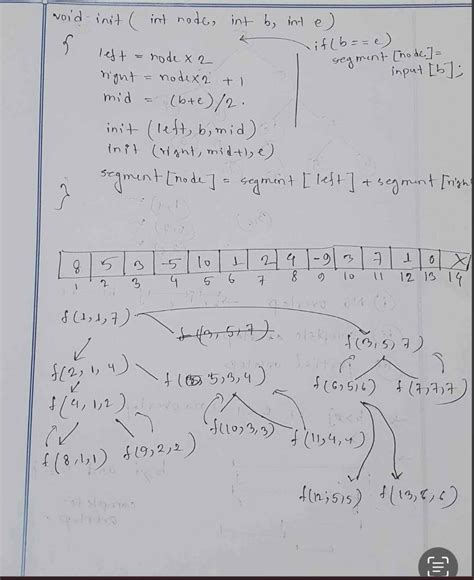 void init ( int node, int b, int e)
{
if (b == e)
segment [node] =
input [b];
left = node x 2
right = node x 2 + 1
mid = (b+e)/2.
init (left, b, mid)
init (right, mid+1, e)
segment [node] = segment [left] + segment [righ
}
8 5 3 -5 10 1 2 4 -9 3 7 1 0 X
1 2 3 4 5 6 7 8 9 10 11 12 13 14
f(1,1,7)
f(3,5,7)
f(3,5,7)
f(2,1,4)
f(5,3,4)
f(6,5,6) f(7,7,7)
f(4,1,2)
f(10,3,3) f(11,4,4)
f(8,1,1) f(9,2,2)
f(12,5,5) f(13,6,6)